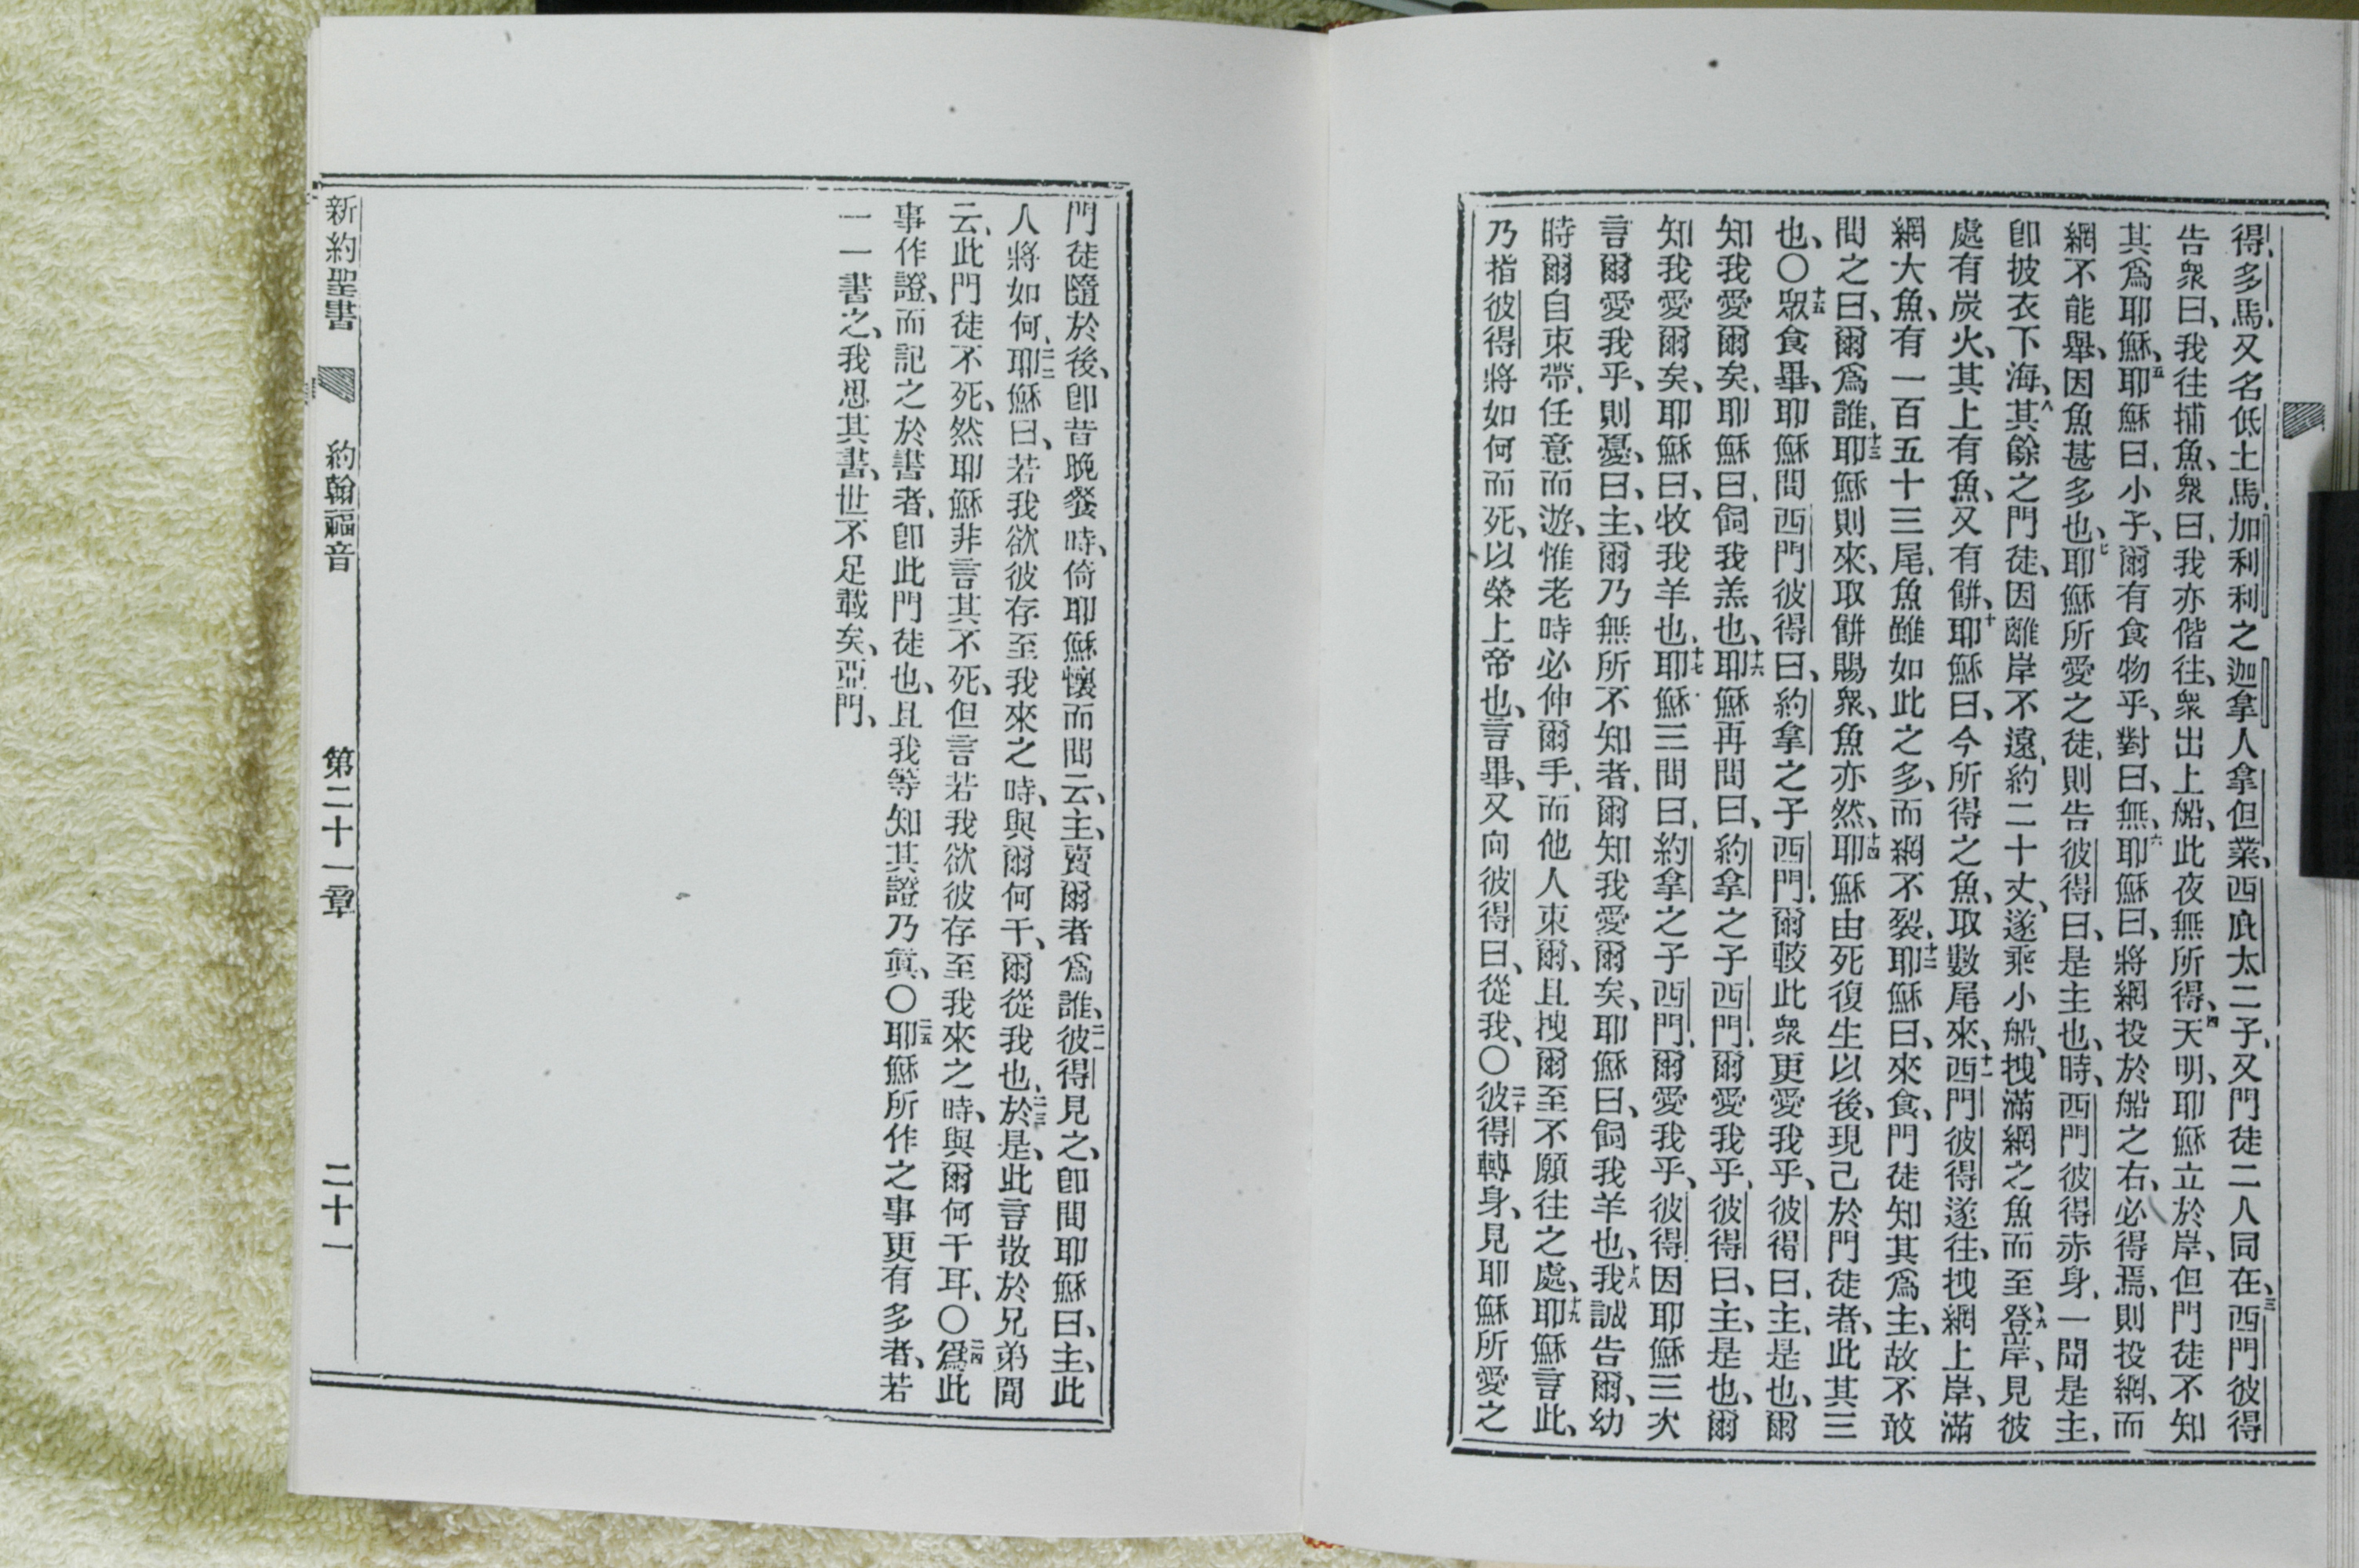 得、多馬、又名低土馬、加利利之迦拿人拿但業、西庇太二子、又門徒二人同在、三西門彼得
告衆曰、我往捕魚、衆曰、我亦偕往、衆出上船、此夜無所得、四天明、耶穌立於岸、但門徒不知
其爲耶穌、五耶穌曰、小子、爾有食物乎、對曰、無、六耶穌曰、將網投於船之右、必得焉、則投網、而
網不能舉、因魚甚多也、七耶穌所愛之徒、則告彼得曰、是主也、時、西門彼得赤身、一聞是主、
卽披衣下海、八其餘之門徒、因離岸不遠、約二十丈、遂乘小船、拽滿網之魚而至、九登岸、見彼
處有炭火、其上有魚、又有餅、十耶穌曰、今所得之魚、取數尾來、十一西門彼得遂往、拽網上岸、滿
網大魚、有一百五十三尾、魚雖如此之多、而網不裂、十二耶穌曰、來食、門徒知其爲主、故不敢
問之曰、爾爲誰、十三耶穌則來、取餅賜衆、魚亦然、十四耶穌由死復生以後、現己於門徒者、此其三
也、〇十五衆食畢、耶穌問西門彼得曰、約拿之子西門、爾較此衆更愛我乎、彼得曰、主、是也、爾
知我愛爾矣、耶穌曰、飼我羔也、十六耶穌再問曰、約拿之子西門、爾愛我乎、彼得曰、主、是也、爾
知我愛爾矣、耶穌曰、牧我羊也、十七耶穌三問曰、約拿之子西門、爾愛我乎、彼得因耶穌三次
言爾愛我乎、則憂、曰、主、爾乃無所不知者、爾知我愛爾矣、耶穌曰、飼我羊也、十八我誠告爾、幼
時爾自束帶、任意而遊、惟老時必伸爾手、而他人束爾、且拽爾至不願往之處、十九耶穌言此、
乃指彼得將如何而死、以榮上帝也、言畢、又向彼得曰、從我、〇二十彼得轉身、見耶穌所愛之
門徒隨於後、卽昔晚餐時、倚耶穌懷而問云、主、賣爾者爲誰、二一彼得見之、卽問耶穌曰、主、此
人將如何、二二耶穌曰、若我欲彼存至我來之時、與爾何干、爾從我也、二三於是、此言散於兄弟間
云、此門徒不死、然耶穌非言其不死、但言若我欲彼存至我來之時、與爾何干耳、〇二四爲此
事作證、而記之於書者、卽此門徒也、且我等知其證乃眞、〇二五耶穌所作之事更有多者、若
一一書之、我思其書、世不足載矣、亞門、
新約聖書 約翰福音 第二十一章 二十一